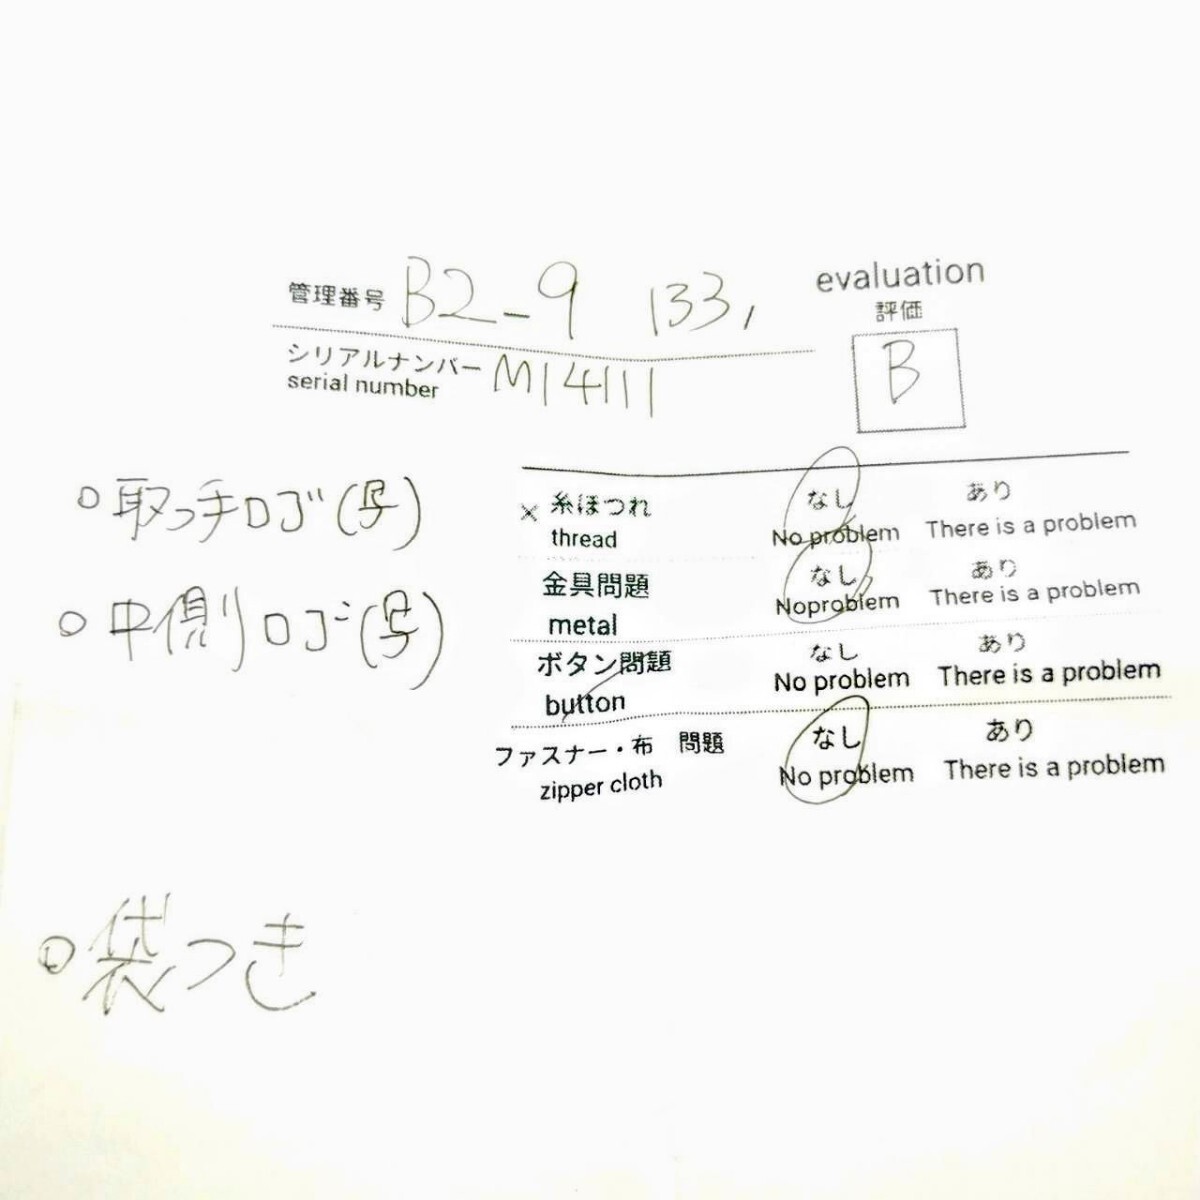 管理番号 B2-9 133,
evaluation
評価
B
シリアルナンバー M14111
serial number
○取っ手ロゴ(号)
○中側りロゴ(号)
× 糸ほつれ なし あり
thread No problem There is a problem
金具問題 なし あり
metal Noproblem There is a problem
ボタン問題 なし あり
button No problem There is a problem
ファスナー・布 問題 なし あり
zipper cloth No problem There is a problem
○袋つき